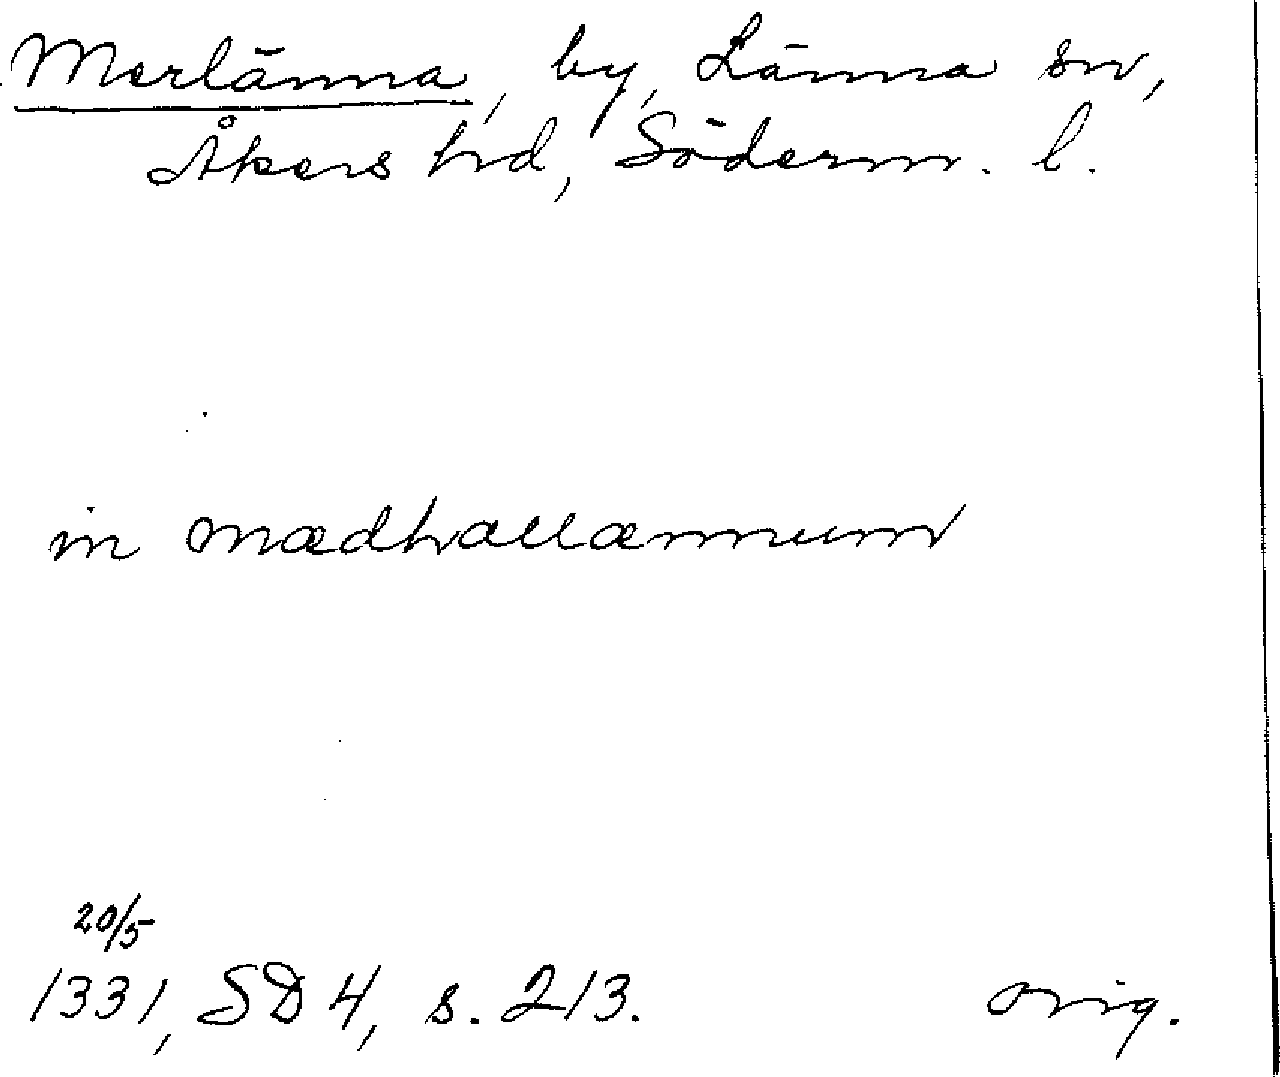 Merlänna, by, Länna sn,
Åkers hd, Söderm. l.
in mædhallænnum
20/5
1331, SD 4, s. 213. orig.